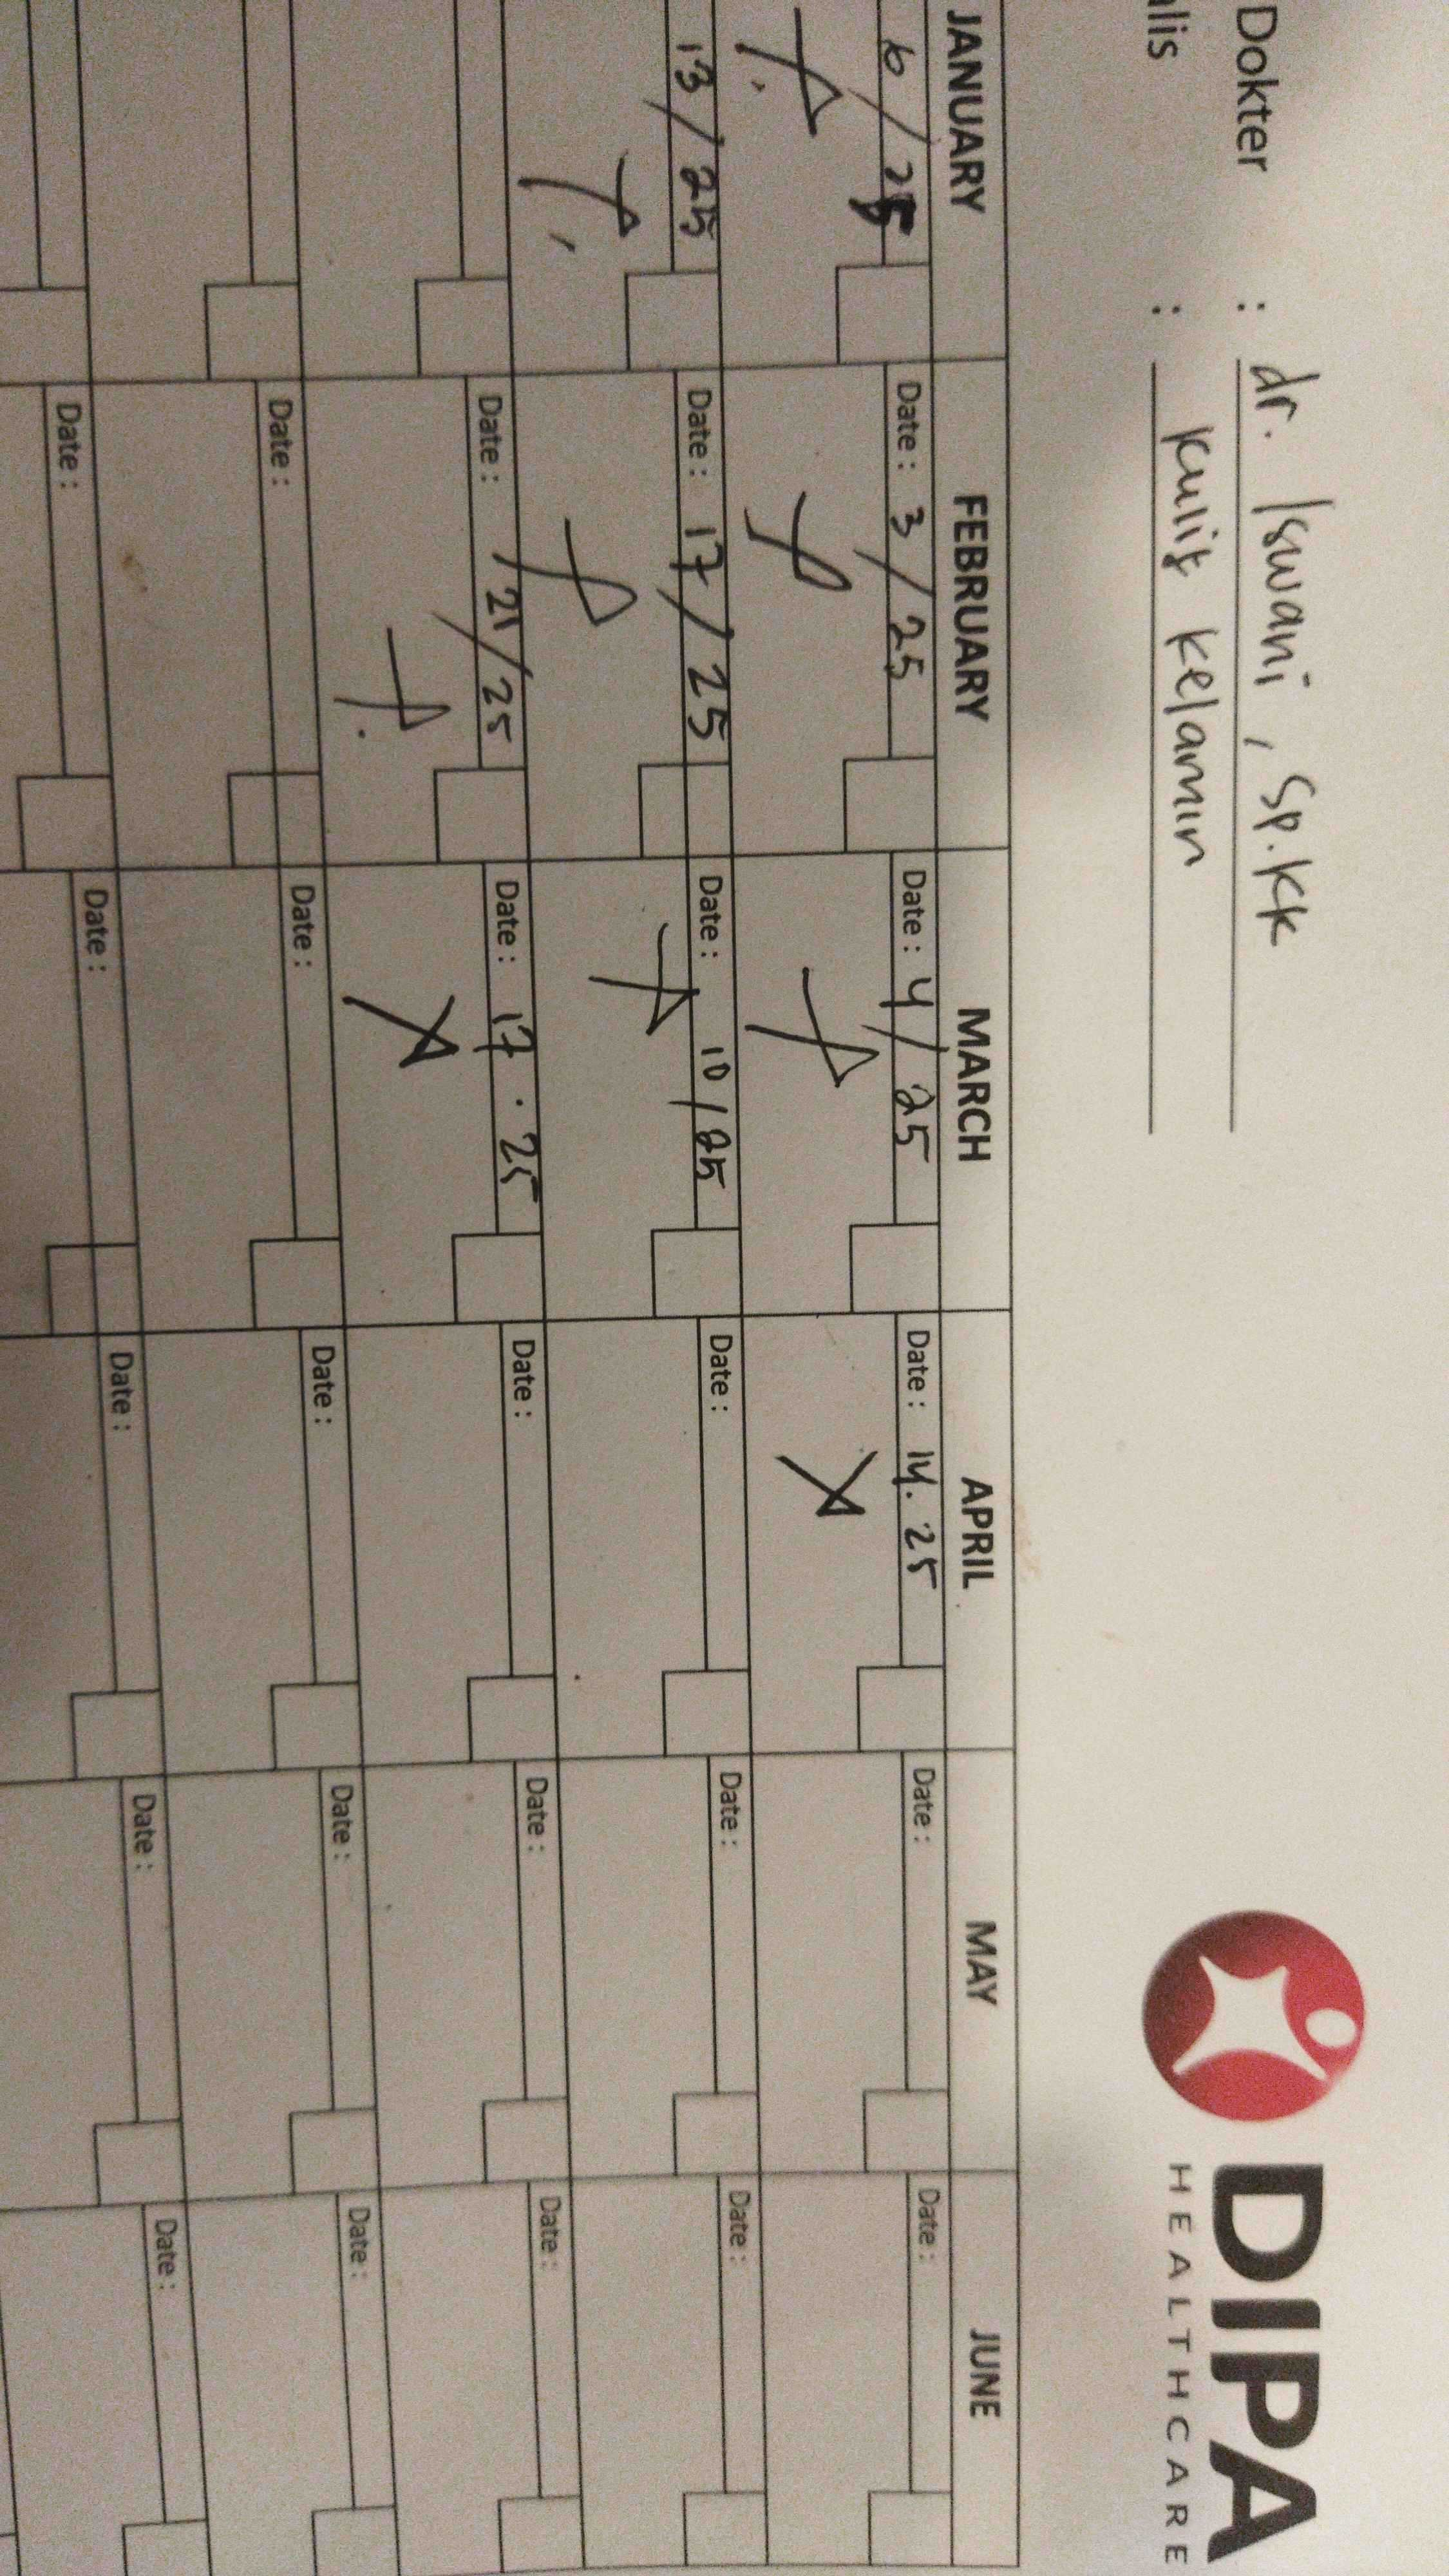 Dokter : dr. Iswani, Sp.KK
alis : Kulit Kelamin
DIPA
HEALTHCARE
JANUARY FEBRUARY MARCH APRIL MAY JUNE
6/25 Date : 3/25 Date : 4/25 Date : 14.25 Date : Date :
13/25 Date : 17/25 Date : 10/25 Date : Date : Date :
Date : 21/25 Date : 17.25 Date : Date : Date :
Date : Date : Date : Date : Date :
Date : Date : Date : Date : Date :